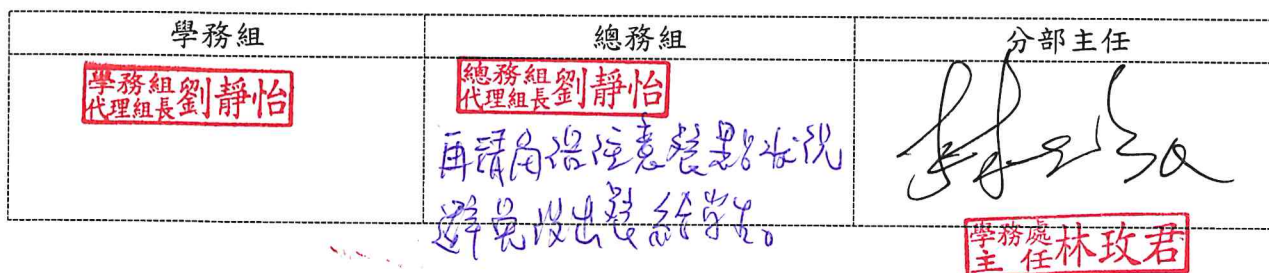 學務組 總務組 分部主任
學務組代理組長 劉靜怡
總務組代理組長 劉靜怡
再請 注意餐點狀況
避免 出餐給學生。
學務處主任 林玫君